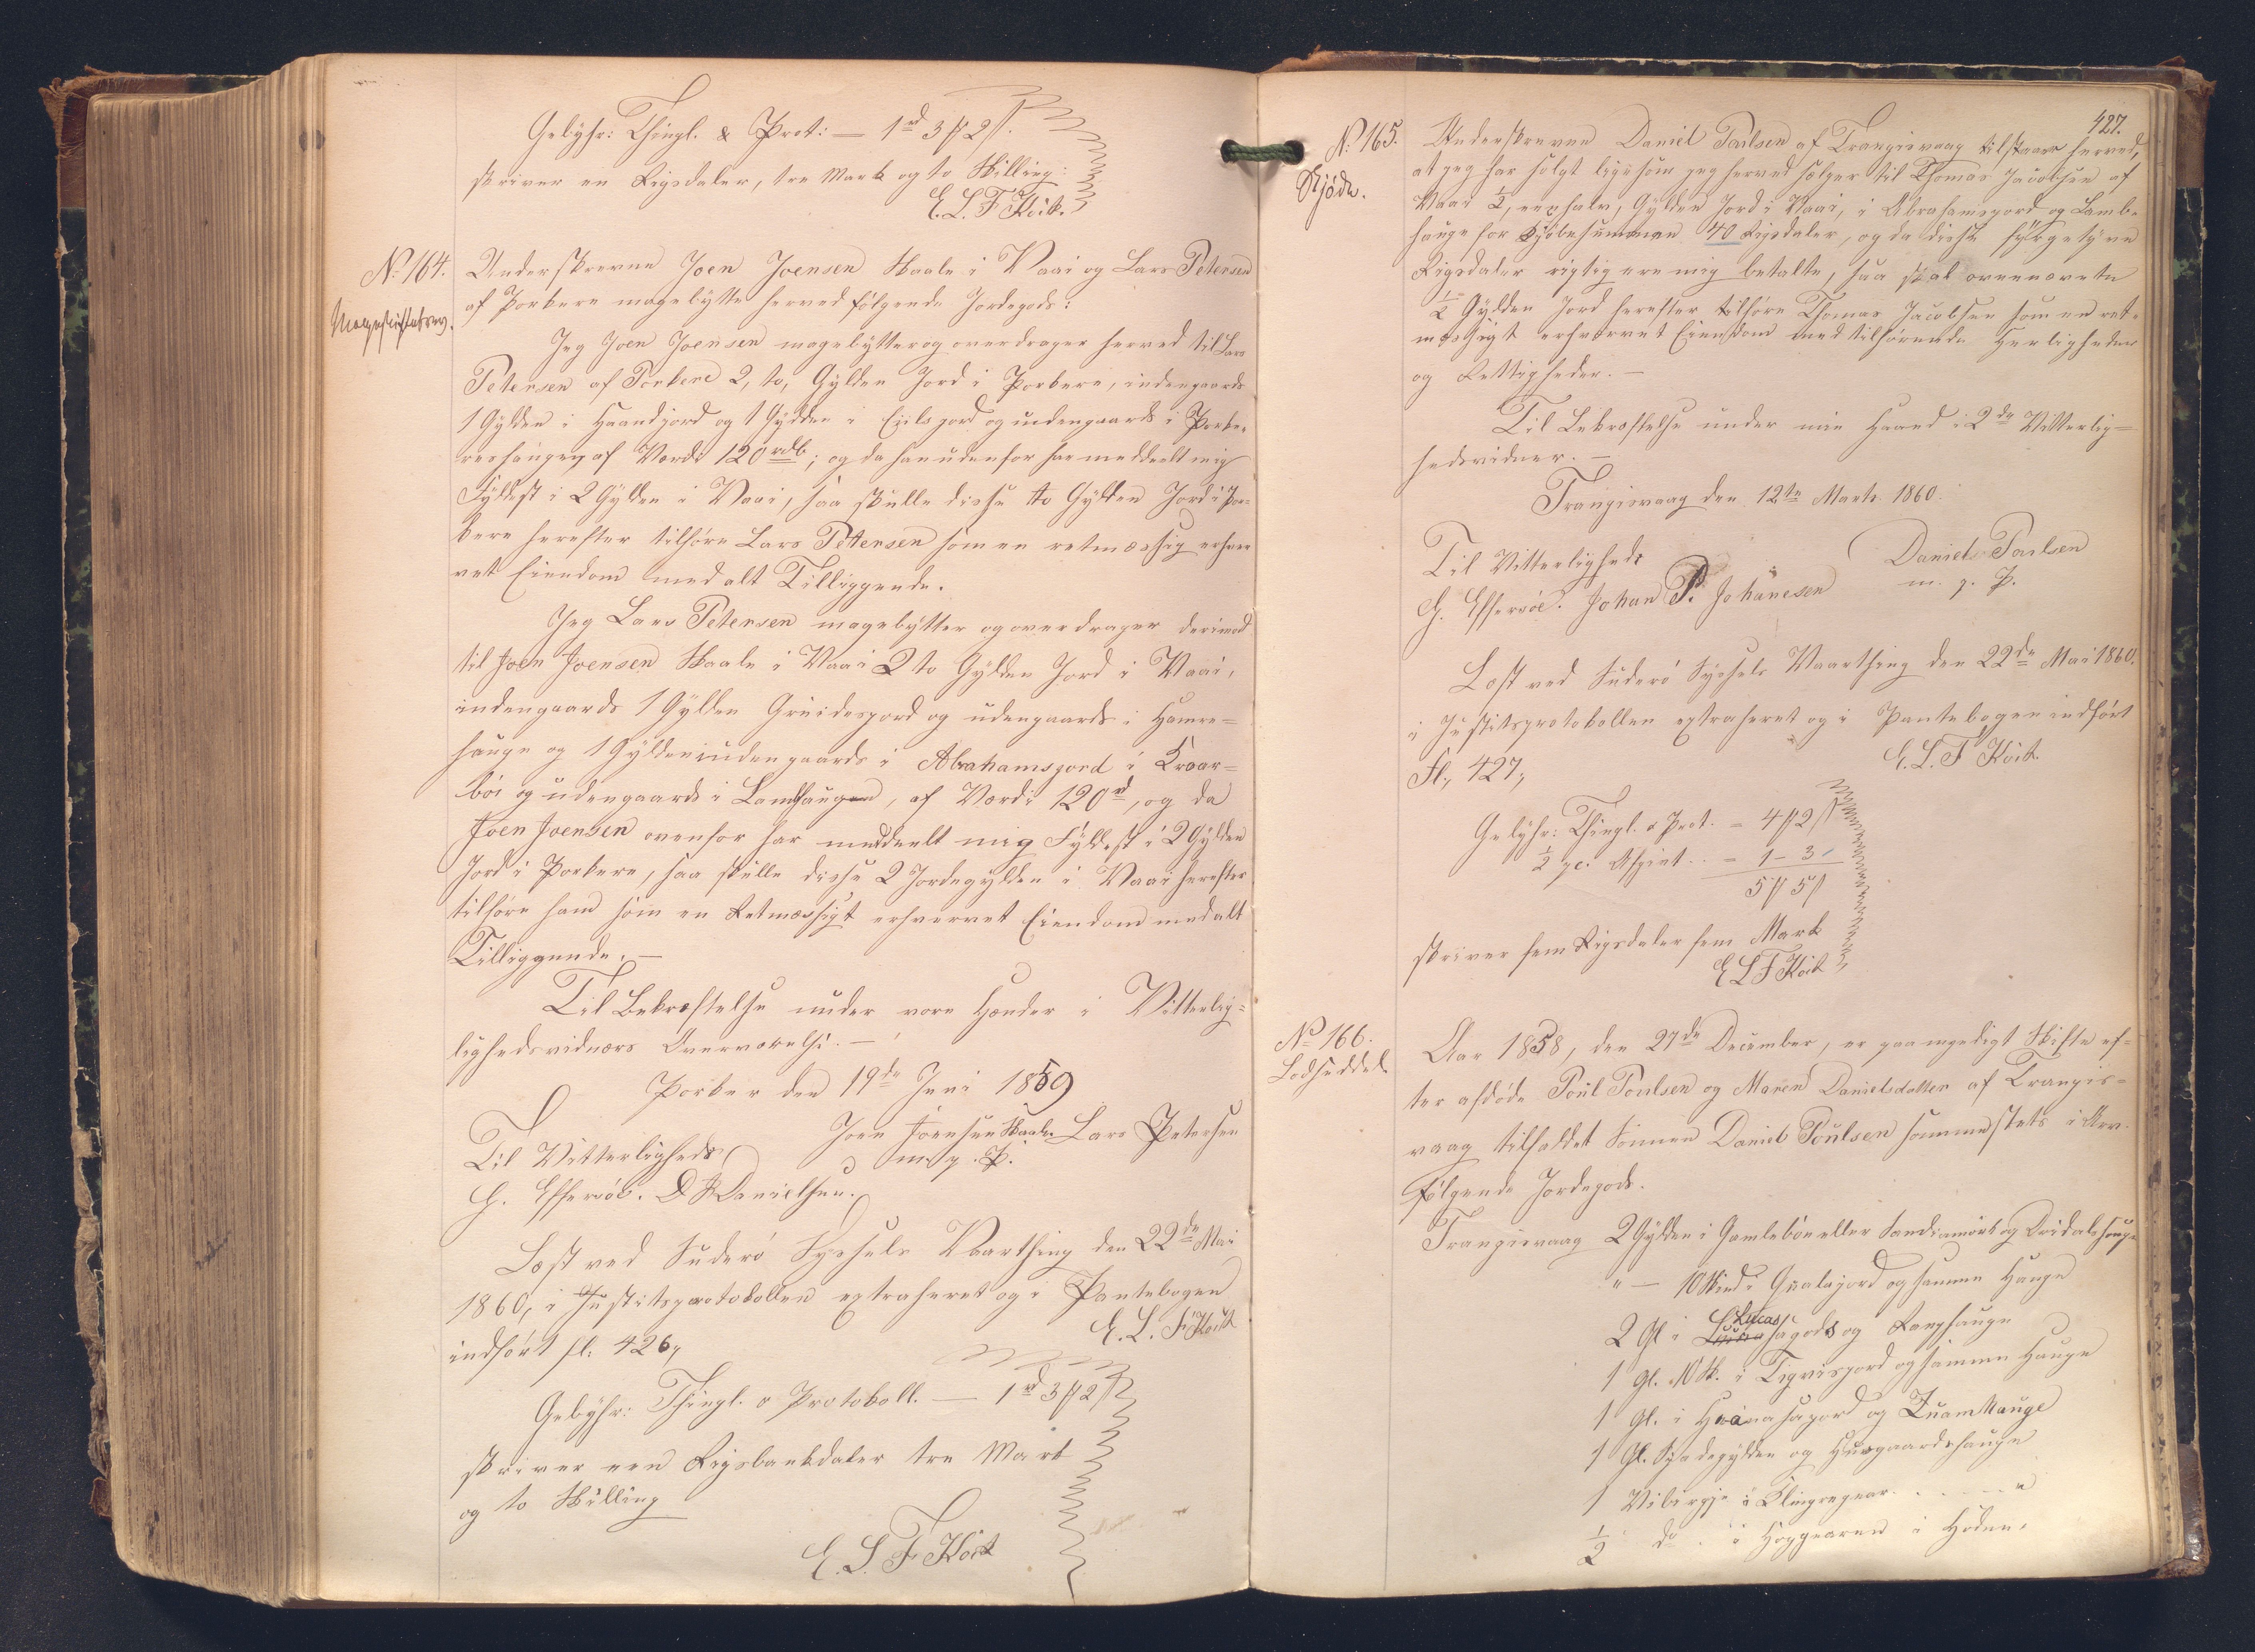 Gebyhr: Thingl. & Prot: — 1rd 3 ₰ 2 ß.
skriver en Rigsdaler, tre Mark og to Skilling:
E. L. F. Koit.
No 164.
Underskrevne Joen Joensen Skaale i Vaai og Lars Petersen
af Porkere magebytte herved følgende Jordegods:
Jeg Joen Joensen magebytter og overdrager herved til Lars
Petersen af Porkere 2, to, Gylden Jord i Porkere, indengaards
1 Gylden i Haandjord og 1 Gylden i Egilsgord og udengaards i Porke-
reshaugen af Værdi 120 rdb; og da han udenfor har meddeelt mig
Fyldest i 2 Gylden i Vaai, saa skulle disse to Gylden Jord i Por-
kere herefter tilhøre Lars Petersen som en retmæssig erhver-
vet Eiendom med alt Tilliggende.
Jeg Lars Petersen magebytter og overdrager derimod
til Joen Joensen Skaale i Vaai 2 to Gylden Jord i Vaai,
indengaards 1 Gylden Gruidesgord og udengaards i Hamre-
hauge og 1 Gylden indengaards i Abrahamsgord i Kraar-
bøi og udengaards i Lambhaugen, af Værdi 120 rd, og da
Joen Joensen ovenfor har meddeelt mig Fyldest i 2 Gylden
Jord i Porkere, saa skulle disse 2 Jordegylden i Vaai herefter
tilhøre ham som en Retmæssigt erhvervet Eiendom med alt
Tilliggende. —
Til Bekræftelse under vore Hænder i Vitterlig-
lighedsvidners Overværelse. —
Porker den 19de Juni 1859
Joen Joensen Skaale Lars Petersen
Til Vitterligheds m. g. P.
G. Effersøe. D J Danielsen.
Læst ved Suderø Syssels Vaarthing den 22de Mai
1860, i Justitsprotokollen extraheret og i Pantebogen
indført fl. 426,
E. L. F. Koit
Gebyhr: Thingl. o Protokoll. — 1 rd 3 ₰ 2 ß
skriver een Rigsbankdaler tre Mark
og to Skilling
E. L. F Koit
427.
No 165.
Skjøde.
Underskrevne Daniel Poulsen af Trangisvaag tilstaaer herved,
at jeg har solgt ligesom jeg herved sælger til Thomas Jacobsen af
Vaai ½, een halv, Gylden Jord i Vaai, i Abrahamsgord og Lamb-
hauge for Kjøbesummen 40 Rigsdaler, og da disse fyrgetyve
Rigsdaler rigtig ere mig betalte, saa skal ovennævnte
½ Gylden Jord herefter tilhøre Thomas Jacobsen som en ret-
mæssigt erhvervet Eiendom med tilhørende Herligheder
og Rettigheder. —
Til Bekræftelse under min Haand i 2de Vitterlig-
hedsvidner. —
Trangisvaag den 12te Marts 1860.
Daniel Poulsen
Til Vitterligheds m. g. P.
G. Effersøe. Johan P. Johanesen
Læst ved Suderø Syssels Vaarthing den 22de Mai 1860.
i Justitsprotokollen extraheret og i Pantebogen indført
Fl. 427,
E. L. F Koit.
Gebyhr: Thingl. o Prot. = 4 ₰ 2 ß
½ pc. Afgivt.. = 1 - 3 -
5 ₰ 5 ß
skriver fem Rigsdaler fem Mark
E L F Koit
No 166.
Lodseddel.
Aar 1858, den 27de December, er paa myndigt Skifte ef-
ter afdøde Poul Poulsen og Maren Danielsdatter af Trangis-
vaag tilfaldet Sønnen Daniel Poulsen sammestets i Arv
følgende Jordegods.
Trangisvaag 2 Gylden i Gamlebøen eller Sandiamørk og Ordalshauge
" — 10 Skind i Qvalagord og samme Hauge
2 Gl i Lucas sagods og Ranghauge
1 Gl. 10 Sk. i Tigrisgord og samme Hauge
1 Gl. i Hránasagord og Quamhauge
1 Gl. Sjadegylden og Husgaardshauge
1 Vibergje i Klingregear. . . . . . . "
½ do . i Hoggearen i Hoden.